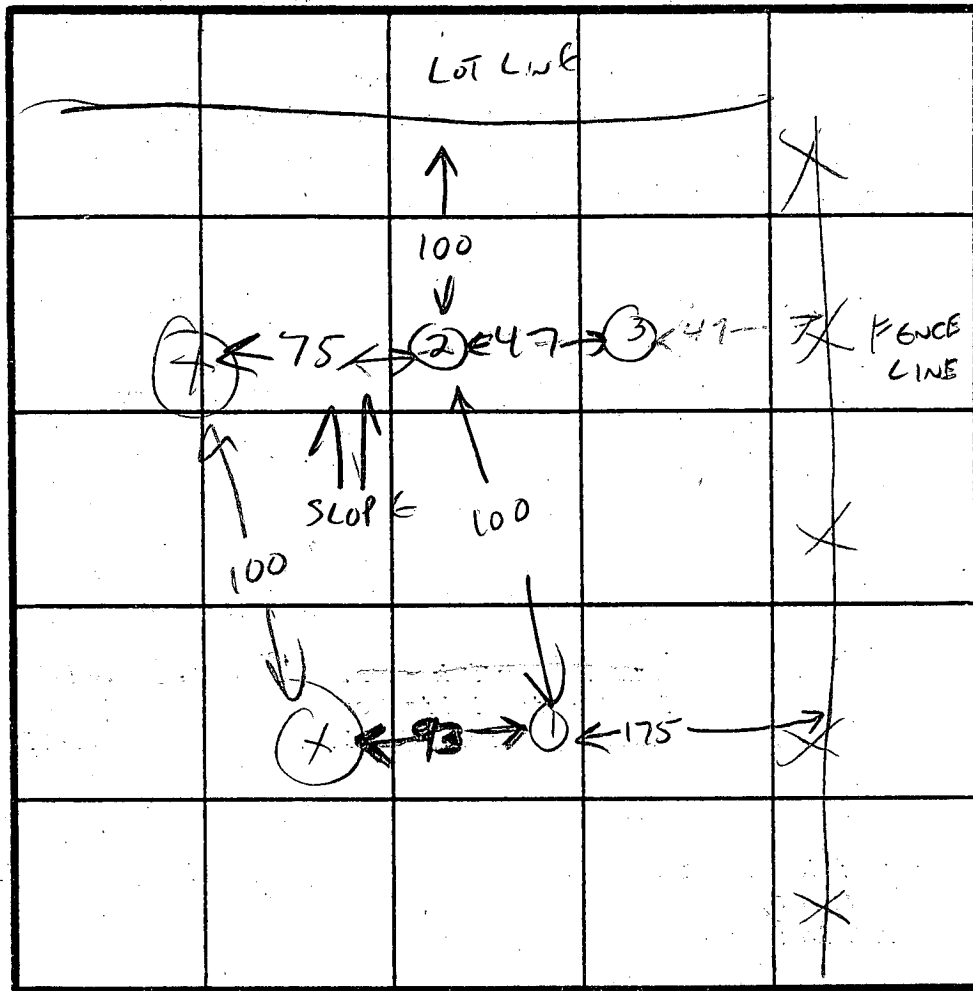 LOT LINE
100
75 2 47 3
FENCE
LINE
SLOPE
100
100
1 175